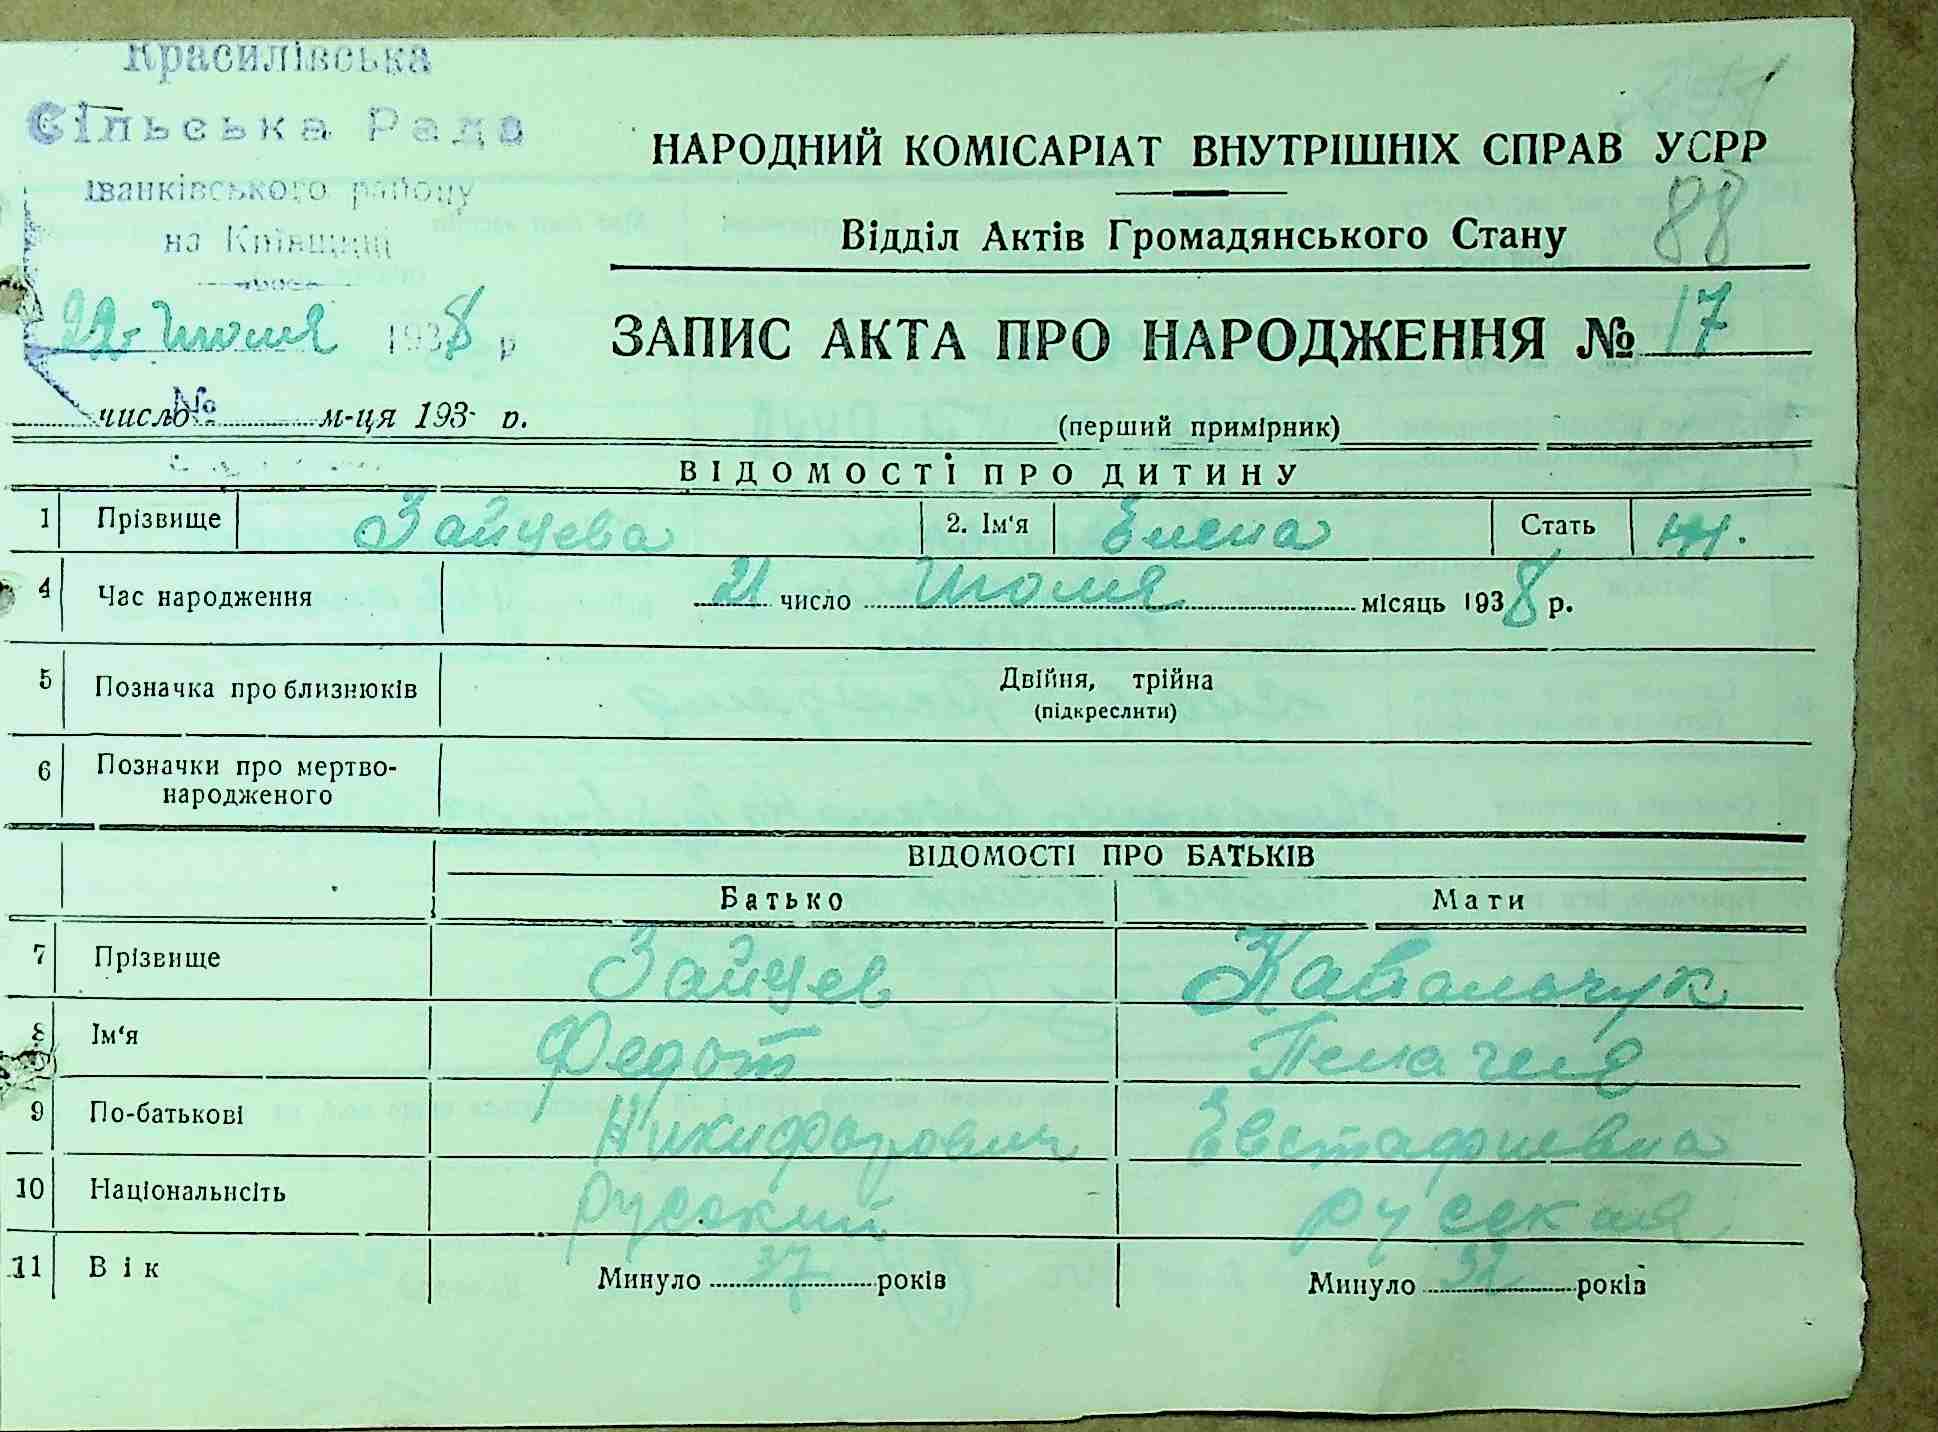 Красилівська
Сільська Рада
Іванківського району
на Київщині
22 Июля 1938 р
№
число м-ця 193 р.
НАРОДНИЙ КОМІСАРІАТ ВНУТРІШНІХ СПРАВ УСРР
88
Відділ Актів Громадянського Стану
ЗАПИС АКТА ПРО НАРОДЖЕННЯ № 17
(перший примірник)
ВІДОМОСТІ ПРО ДИТИНУ
1 Прізвище Зайцева 2. Ім'я Елена Стать ж.
4 Час народження 21 число Июля місяць 1938 р.
5 Позначка про близнюків Двійня, трійна
(підкреслити)
6 Позначки про мертво-
народженого
ВІДОМОСТІ ПРО БАТЬКІВ
Батько Мати
7 Прізвище Зайцев Кавальчук
8 Ім'я Федот Пелагея
9 По-батькові Никифорович Евстафиевна
10 Національнсіть русский русская
11 Вік Минуло 37 років Минуло 32 років